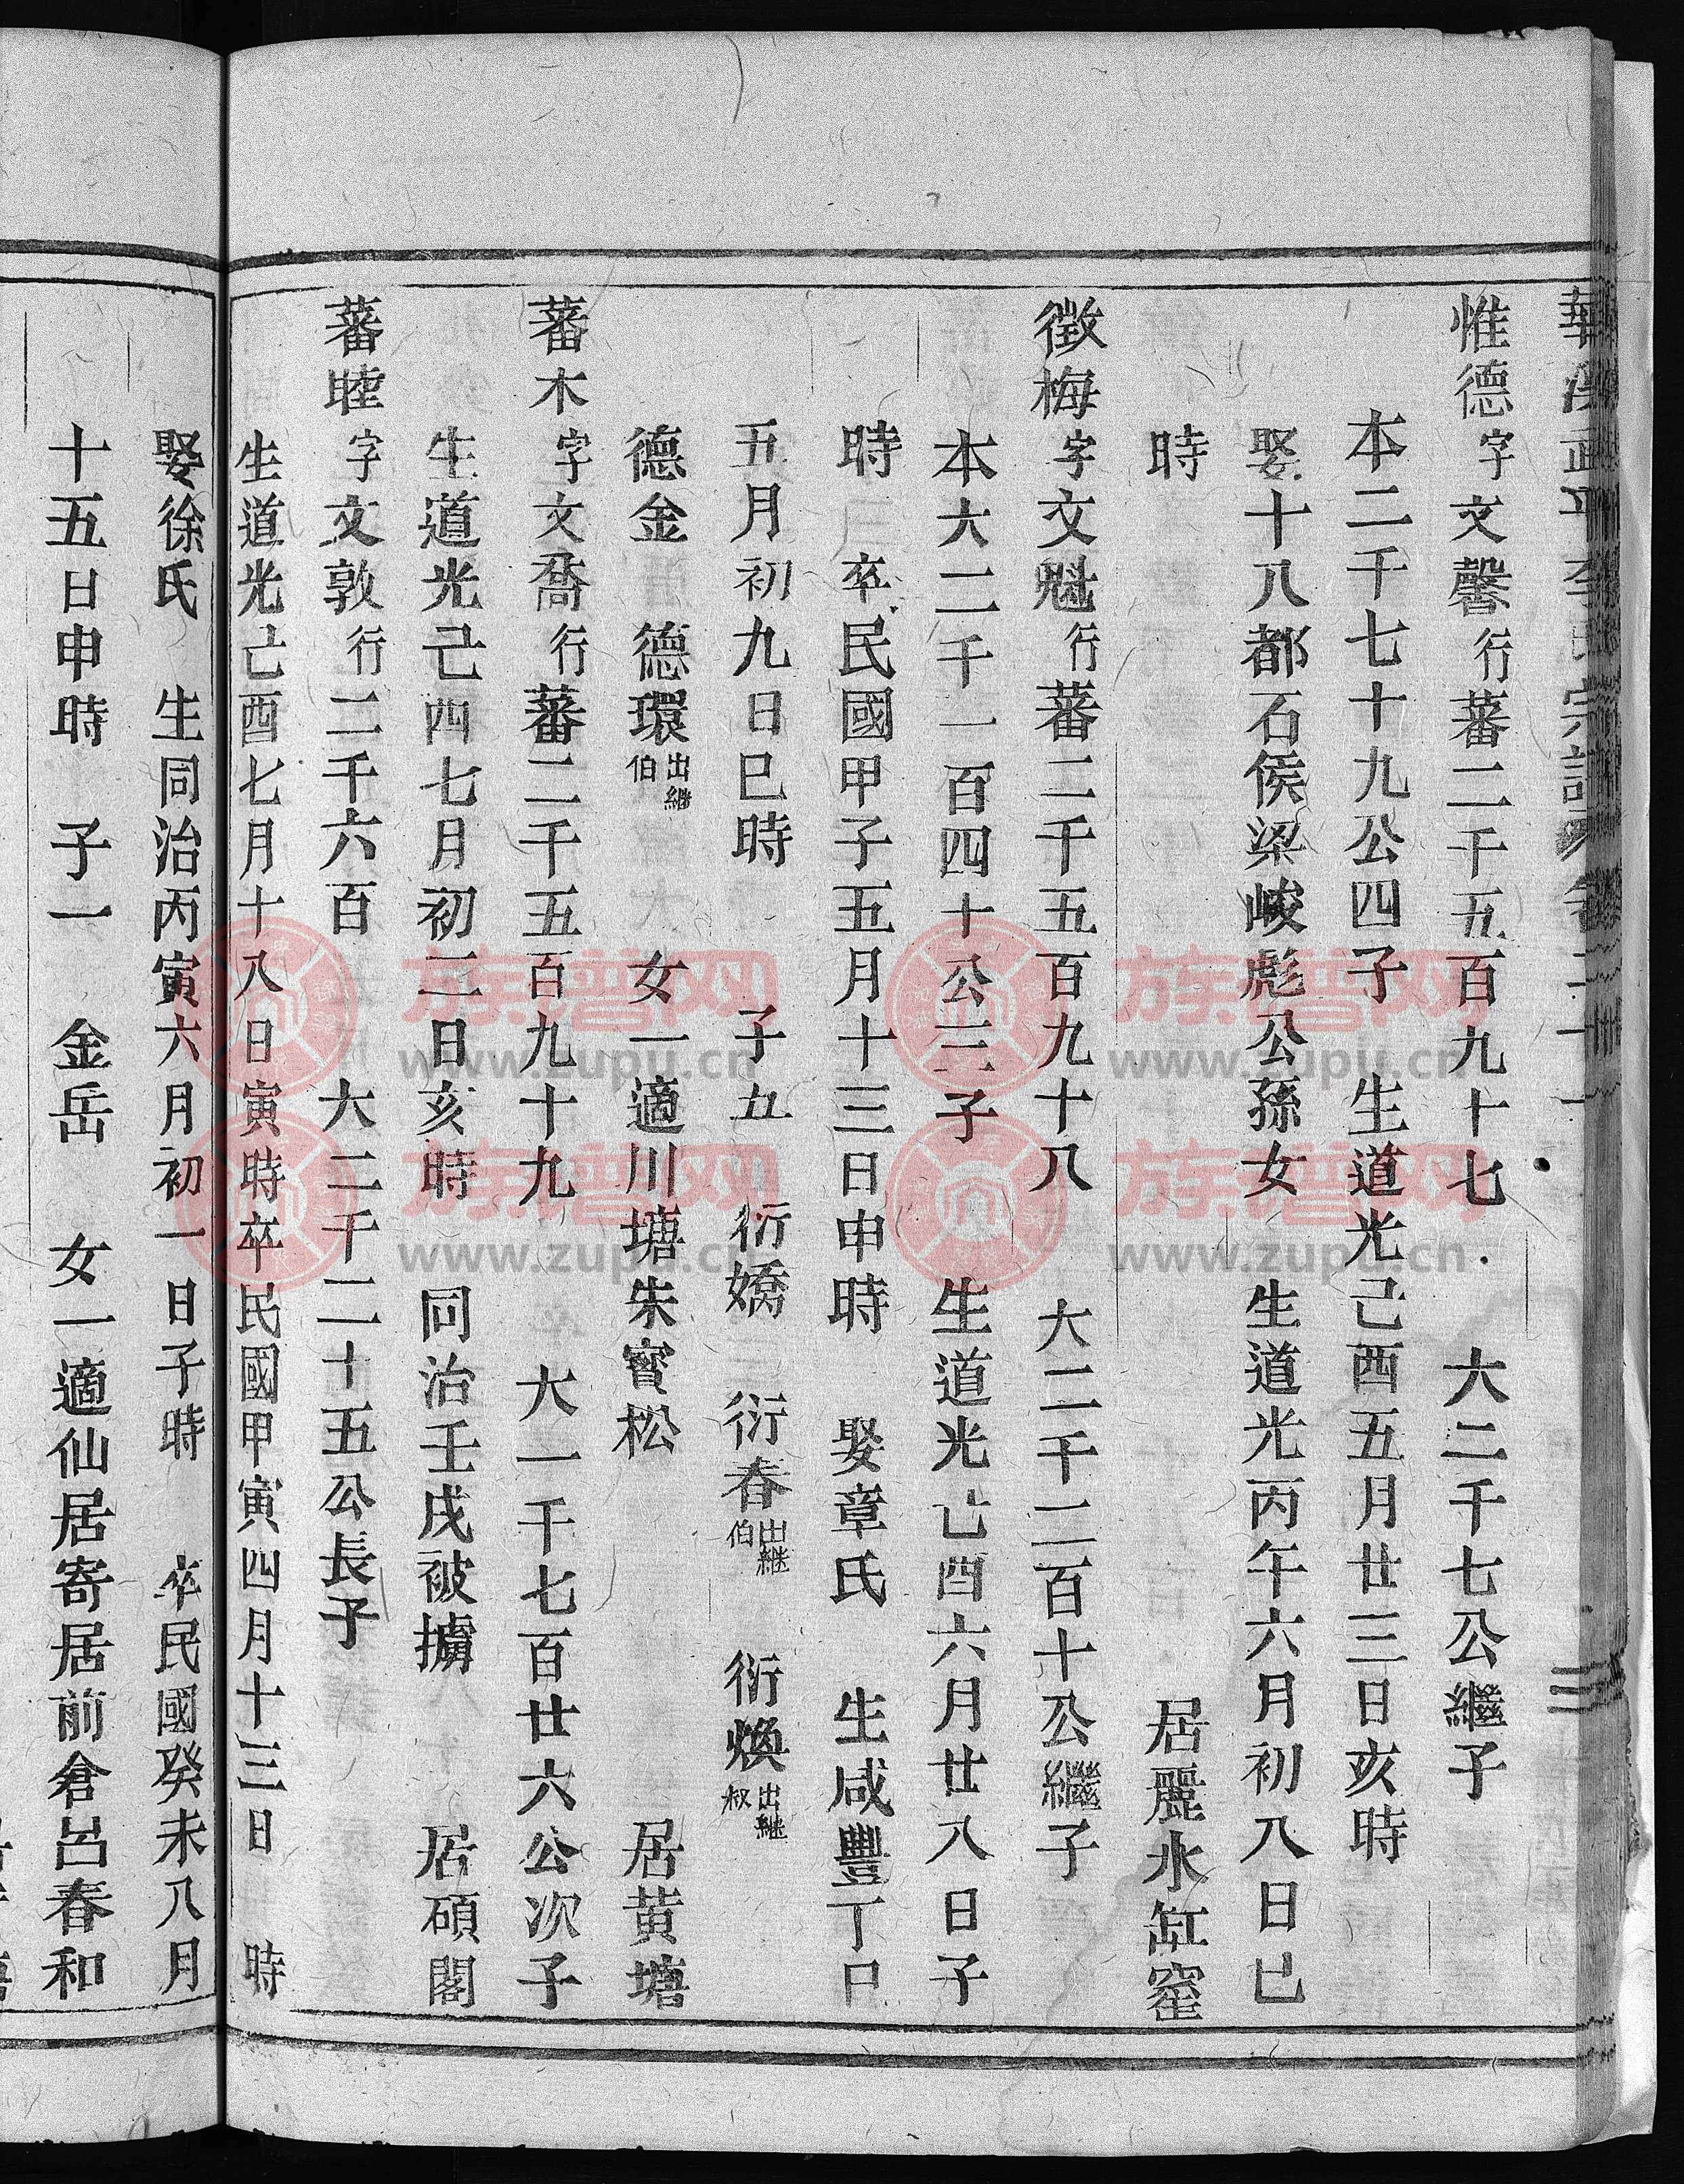 惟德字文馨行蕃二千五百九十七 大二千七公繼子
本二千七十九公四子 生道光己酉五月廿三日亥時
娶十八都石侯梁峻彪公孫女 生道光丙午六月初八日巳
時 居麗水缸窰
徵梅字文魁行蕃二千五百九十八 大二千二百十公繼子
本大二千一百四十公三子 生道光己酉六月廿八日子
時 卒民國甲子五月十三日申時 娶章氏 生咸豐丁巳
五月初九日巳時 子五 衍嬌 衍春出繼伯 衍煥出繼叔
德金 德環出繼伯 女一適川塘朱寶松 居黄塘
蕃木字文喬行蕃二千五百九十九 大一千七百廿六公次子
生道光己酉七月初二日亥時 同治壬戌被擄 居碩閣
蕃睦字文敦行二千六百 大二千二十五公長子
生道光己酉七月十八日寅時卒民國甲寅四月十三日 時
娶徐氏 生同治丙寅六月初一日子時 卒民國癸未八月
十五日申時 子一 金岳 女一適仙居寄居前倉吕春和
族谱网
www.zupu.cn
族谱网
www.zupu.cn
族谱网
www.zupu.cn
族谱网
www.zupu.cn